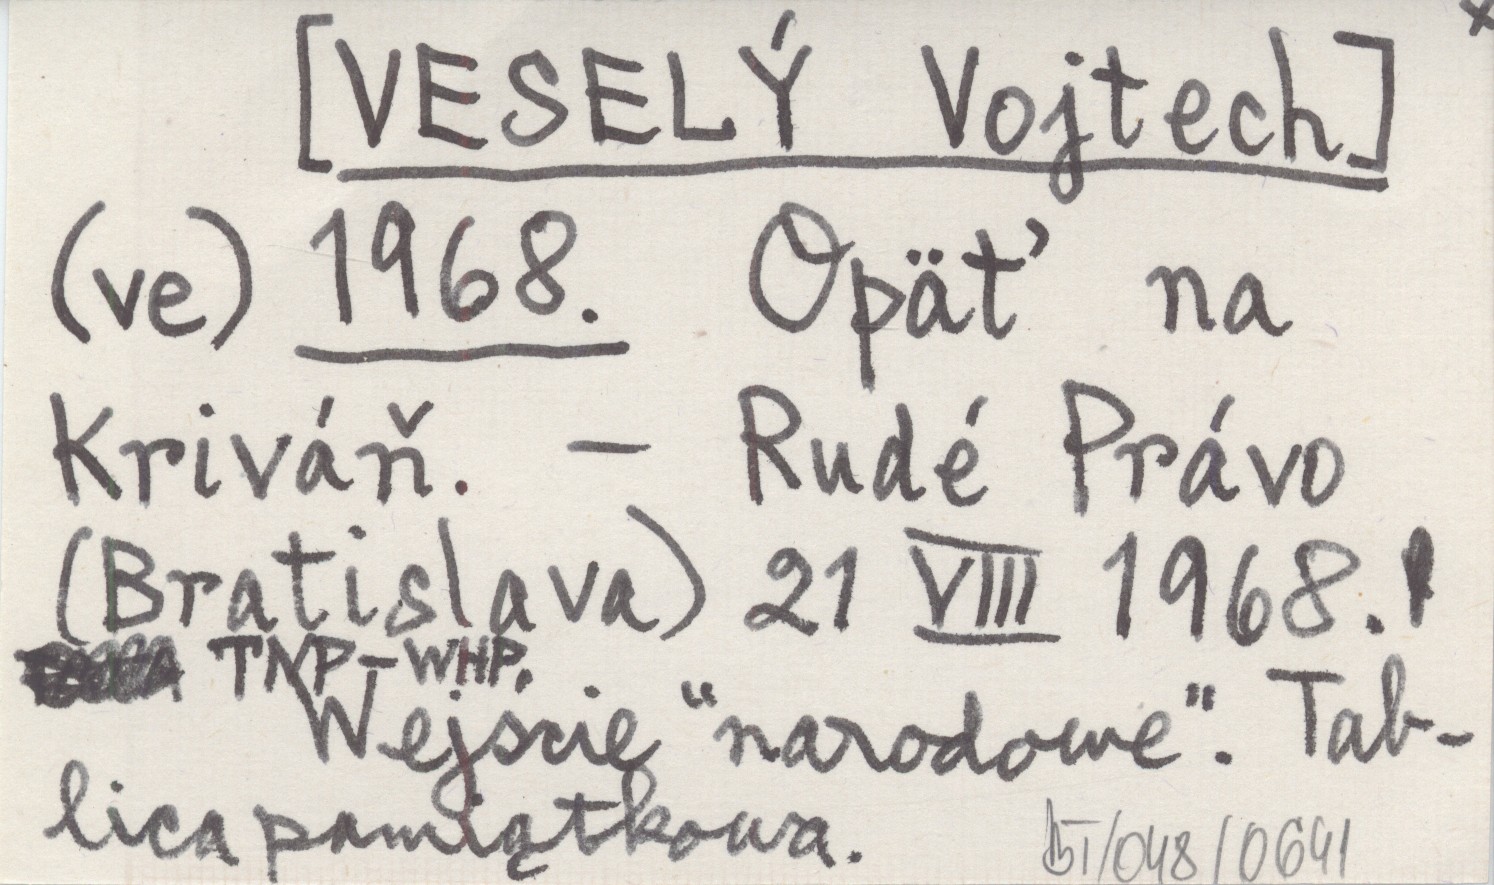 x
[VESELÝ Vojtech]
(ve) 1968. Opäť na
Kriváň. – Rudé Právo
(Bratislava) 21 VIII 1968.
TNP-WHP.
Wejście "narodowe". Tab-
lica pamiątkowa.
/048/0641